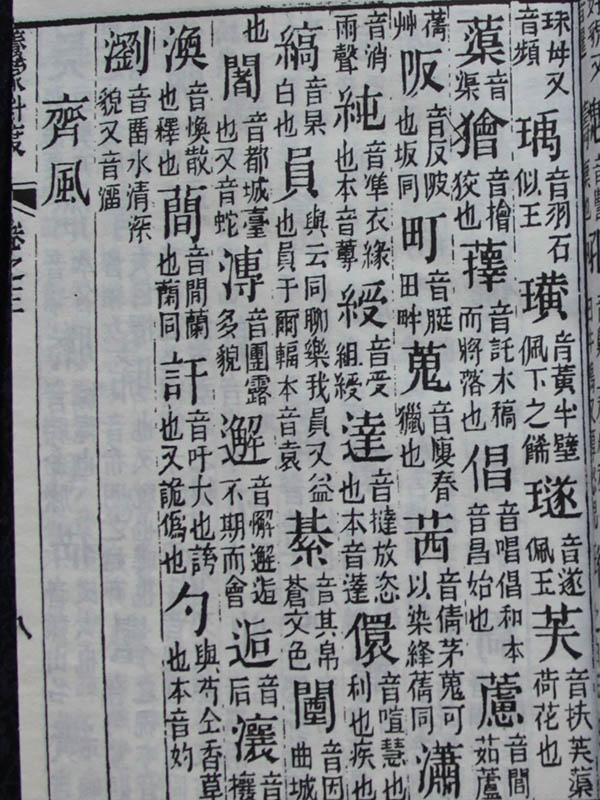 珠母又音頻瑀音羽石似玉璜音黃半璧佩下之飾璲音遂佩玉芙音扶芙蕖荷花也
蕖音渠獪音擔狡也蘀音託木槁而將落也倡音唱倡和本音昌始也藘音閭茹藘
蒨艸阪音反陂也坂同町音脡田畔蒐音廋春獵也茜音倩茅蒐可以染絳蒨同瀟
音消雨聲純音準衣緣也本音蓴綬音受組綬達音撻放恣也本音蓬儇音喧慧也利也疾也
縞音杲白也員與云同聊樂我員又益也員于爾輻本音袁綦音其帛蒼艾色闉音因曲城
也闍音都城臺也又音蛇漙音團露多貌邂音懈邂逅不期而會逅音后瀼音攘
渙音煥散也釋也蕑音間蘭也蘭同訏音吁大也誇也又詭僞也勺與芍仝香草也本音妁
瀏音畱水清深貌又音溜
齊風
卷之三
八